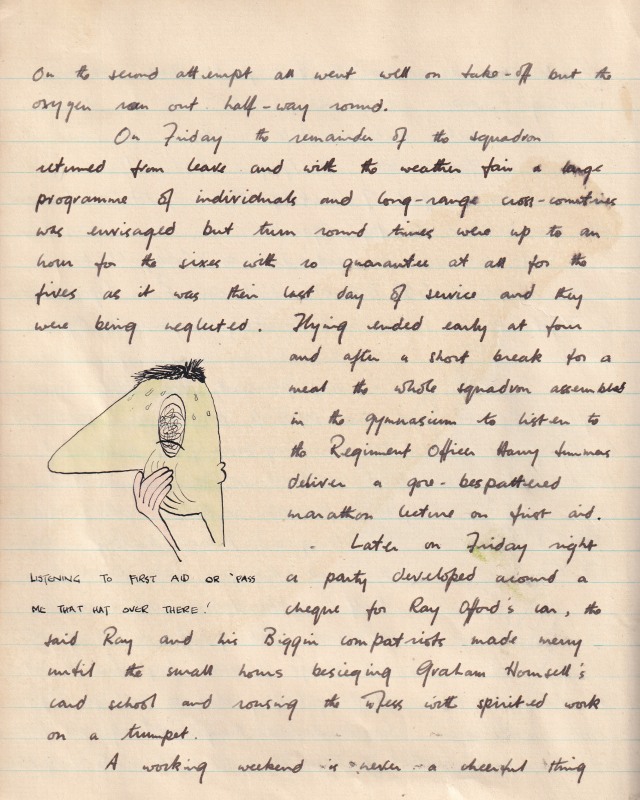 On the second attempt all went well on take-off but the
oxygen ran out half-way round.
On Friday the remainder of the squadron
returned from leave and with the weather fair a large
programme of individuals and long-range cross-countries
was envisaged but turn round times were up to an
hour for the sixes with no guarantee at all for the
fives as it was their last day of service and they
were being neglected. Flying ended early at four
and after a short break for a
meal the whole squadron assembled
in the gymnasium to listen to
the Regiment Officer Harry Summers
deliver a gore-bespattered
marathon lecture on first aid.
Later on Friday night
LISTENING TO FIRST AID OR 'PASS
ME THAT HAT OVER THERE!'
a party developed around a
cheque for Ray Offord's car, the
said Ray and his Biggin compatriots made merry
until the small hours besieging Graham Hounsell's
card school and rousing the Mess with spirited work
on a trumpet.
A working weekend is never a cheerful thing